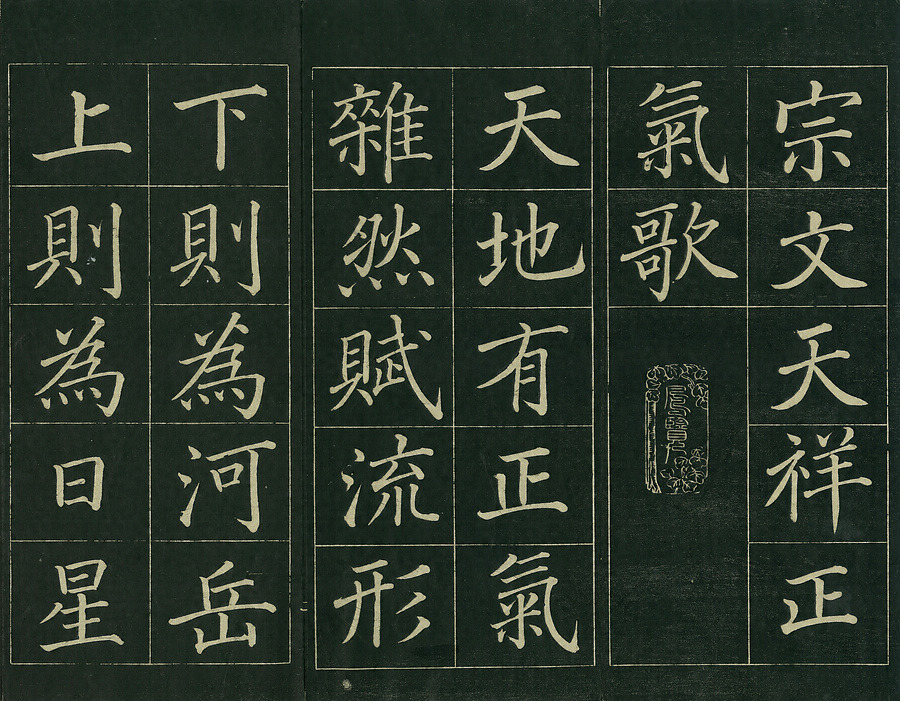 宗文天祥正
氣歌
天地有正氣
雜然賦流形
下則為河岳
上則為日星